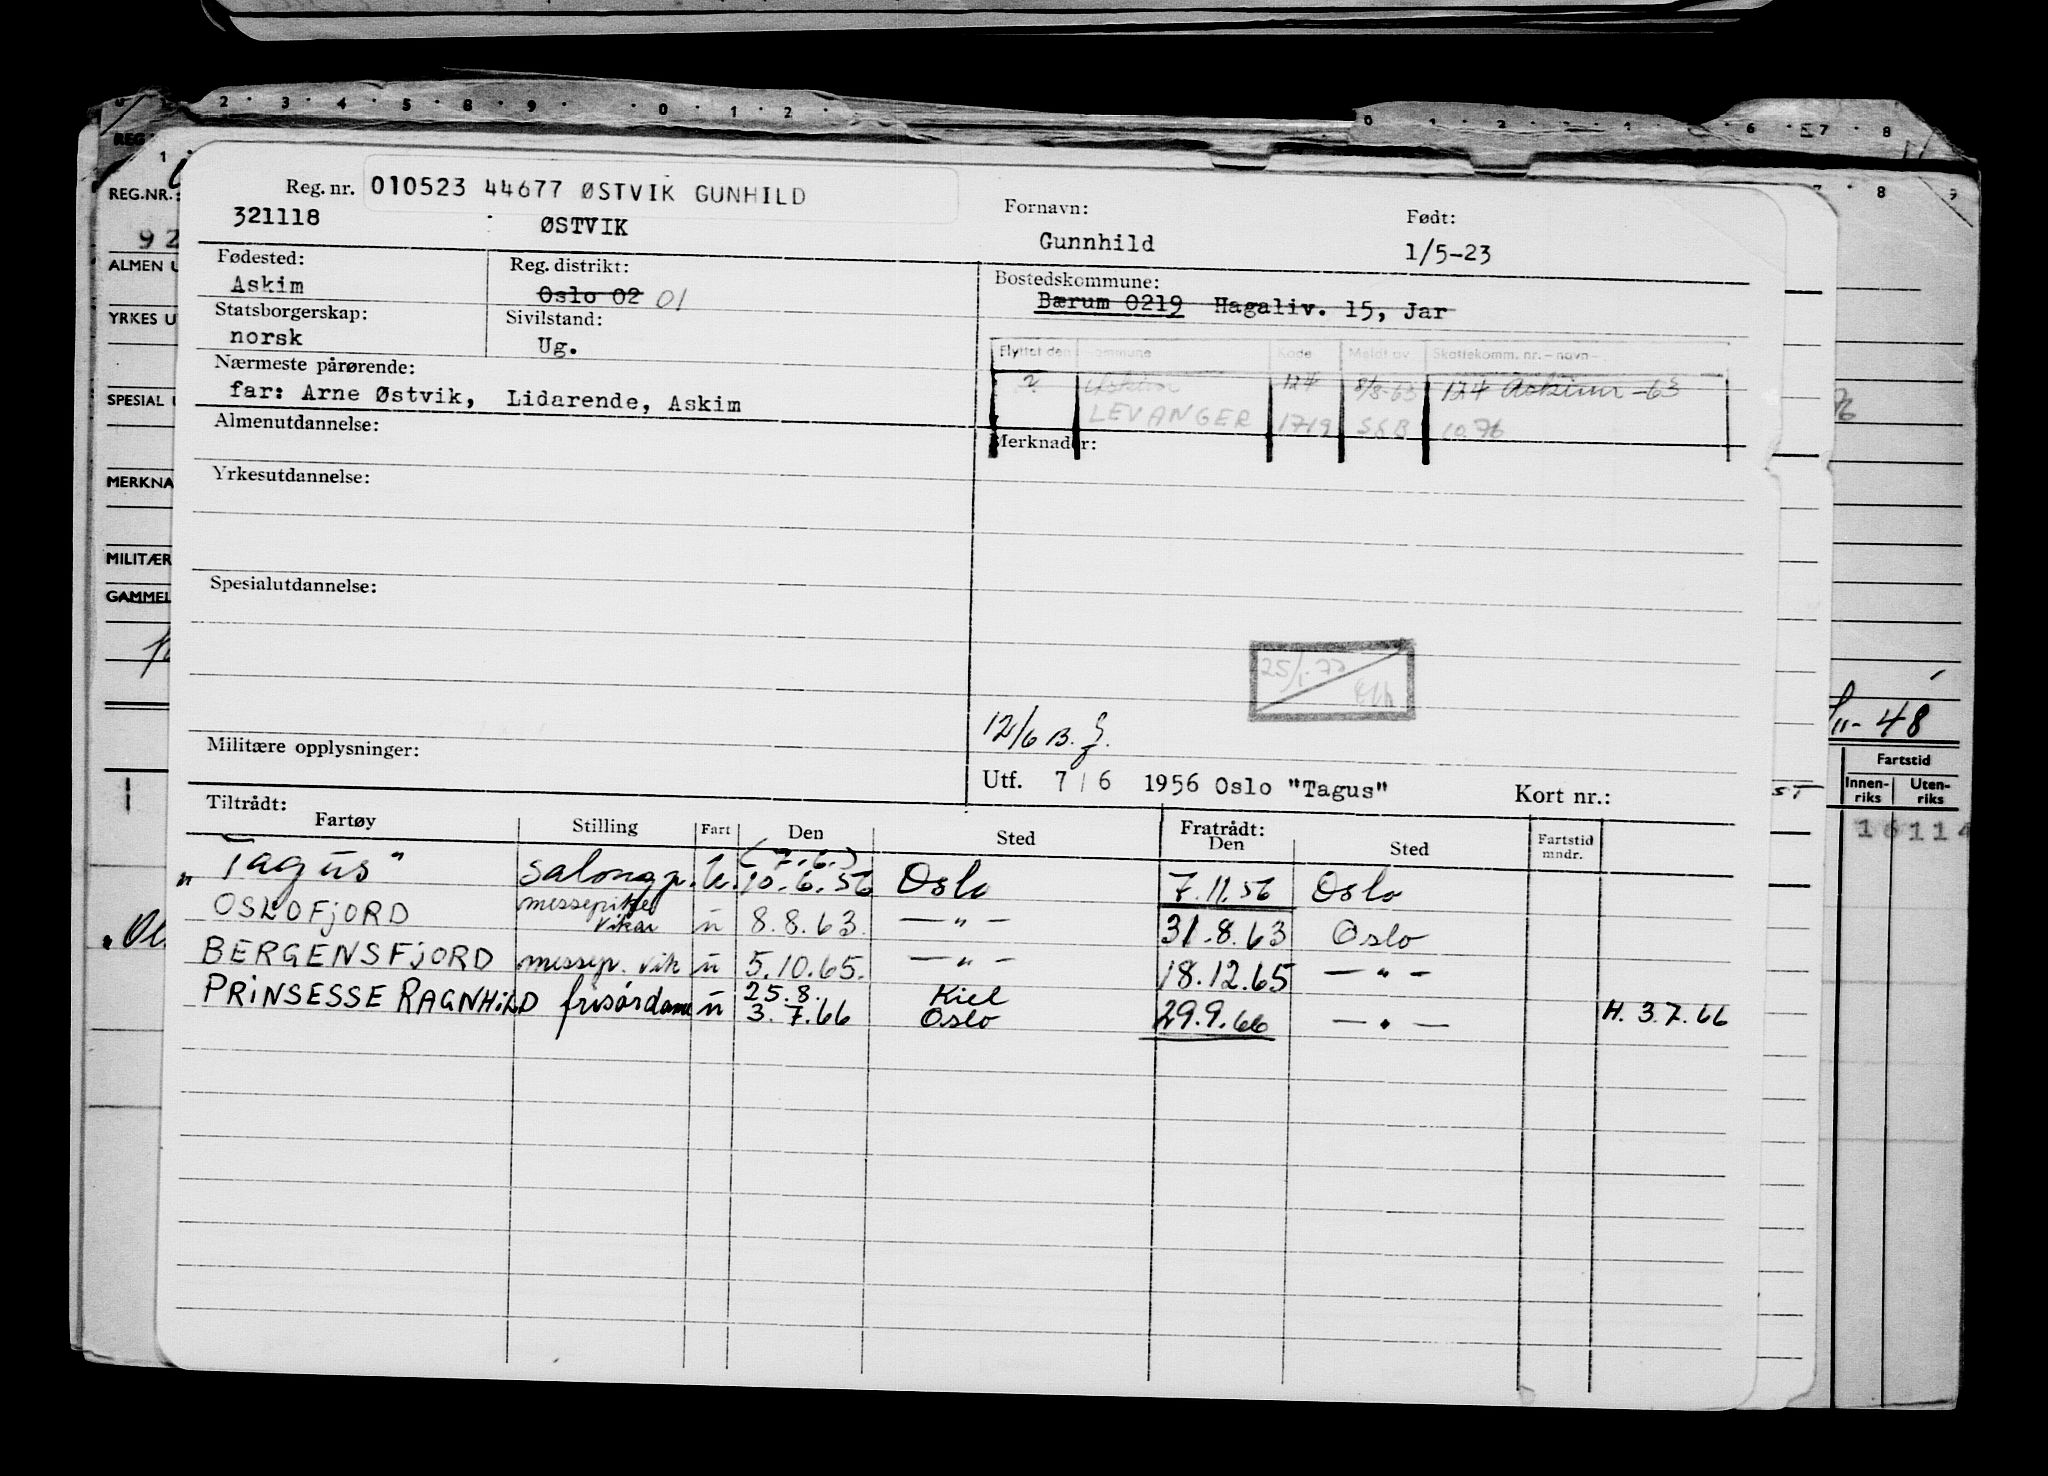 Reg. nr. 010523 44677 ØSTVIK GUNHILD
321118 ØSTVIK
Fornavn: Gunnhild
Født: 1/5-23
Fødested: Askim
Reg. distrikt: Oslo 02 01
Bostedskommune: Bærum 0219 Hagaliv. 15, Jar
Statsborgerskap: norsk
Sivilstand: Ug.
Flyttet den Kommune Kode Meldt av Skattekomm. nr. - navn -
Askim 124 8/8-63 124 Askim -63
LEVANGER 1719 SSB 10.76
Nærmeste pårørende:
far: Arne Østvik, Lidarende, Askim
Almenutdannelse:
Merknader:
Yrkesutdannelse:
Spesialutdannelse:
25/1.77
12/6 B.
Militære opplysninger:
Utf. 7/6 1956 Oslo "Tagus" Kort nr.:
Tiltrådt: Fratrådt:
Fartøy Stilling Fart Den Sted Den Sted Fartstid mndr.
"Tagus" salongp. u. (7.6.) 10.6.56 Oslo 7.11.56 Oslo
OSLOFJORD messepike vikar u 8.8.63. — " — 31.8.63 Oslo
BERGENSFJORD messep. vik u 5.10.65. — " — 18.12.65 — " —
PRINSESSE RAGNHILD frisørdame u 25.8. 3.7.66 Kiel Oslo 29.9.66 — " — H. 3.7.66
REG.NR.:
92
ALMEN U
YRKES U
SPESIAL
MERKNA
MILITÆR
GAMMEL
11-48
Fartstid
Innen-riks Uten-riks